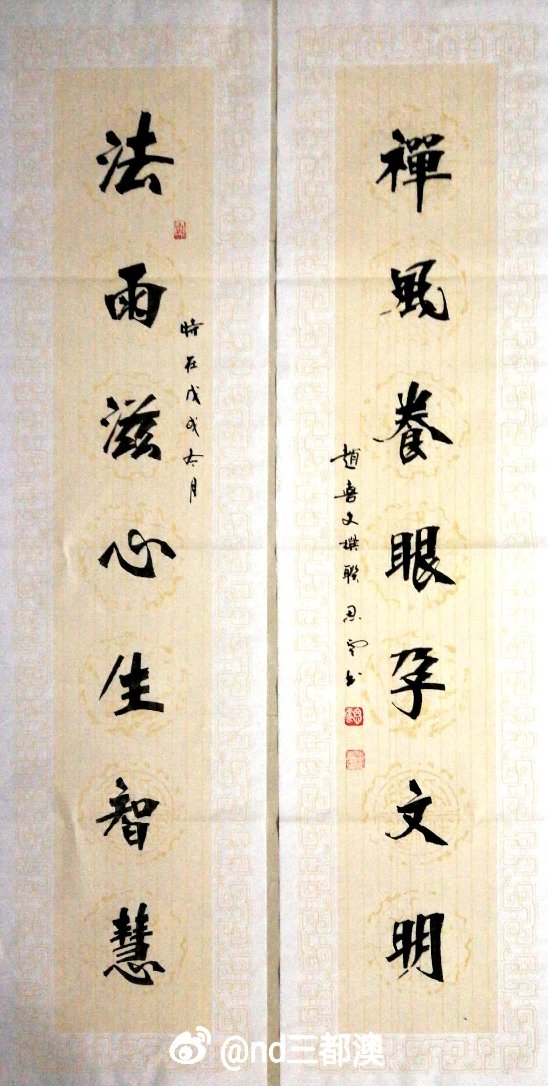 法雨滋心生智慧
時在戊戌月
禪風養眼孕文明
趙喜文撰聯思空书
@nd三都澳